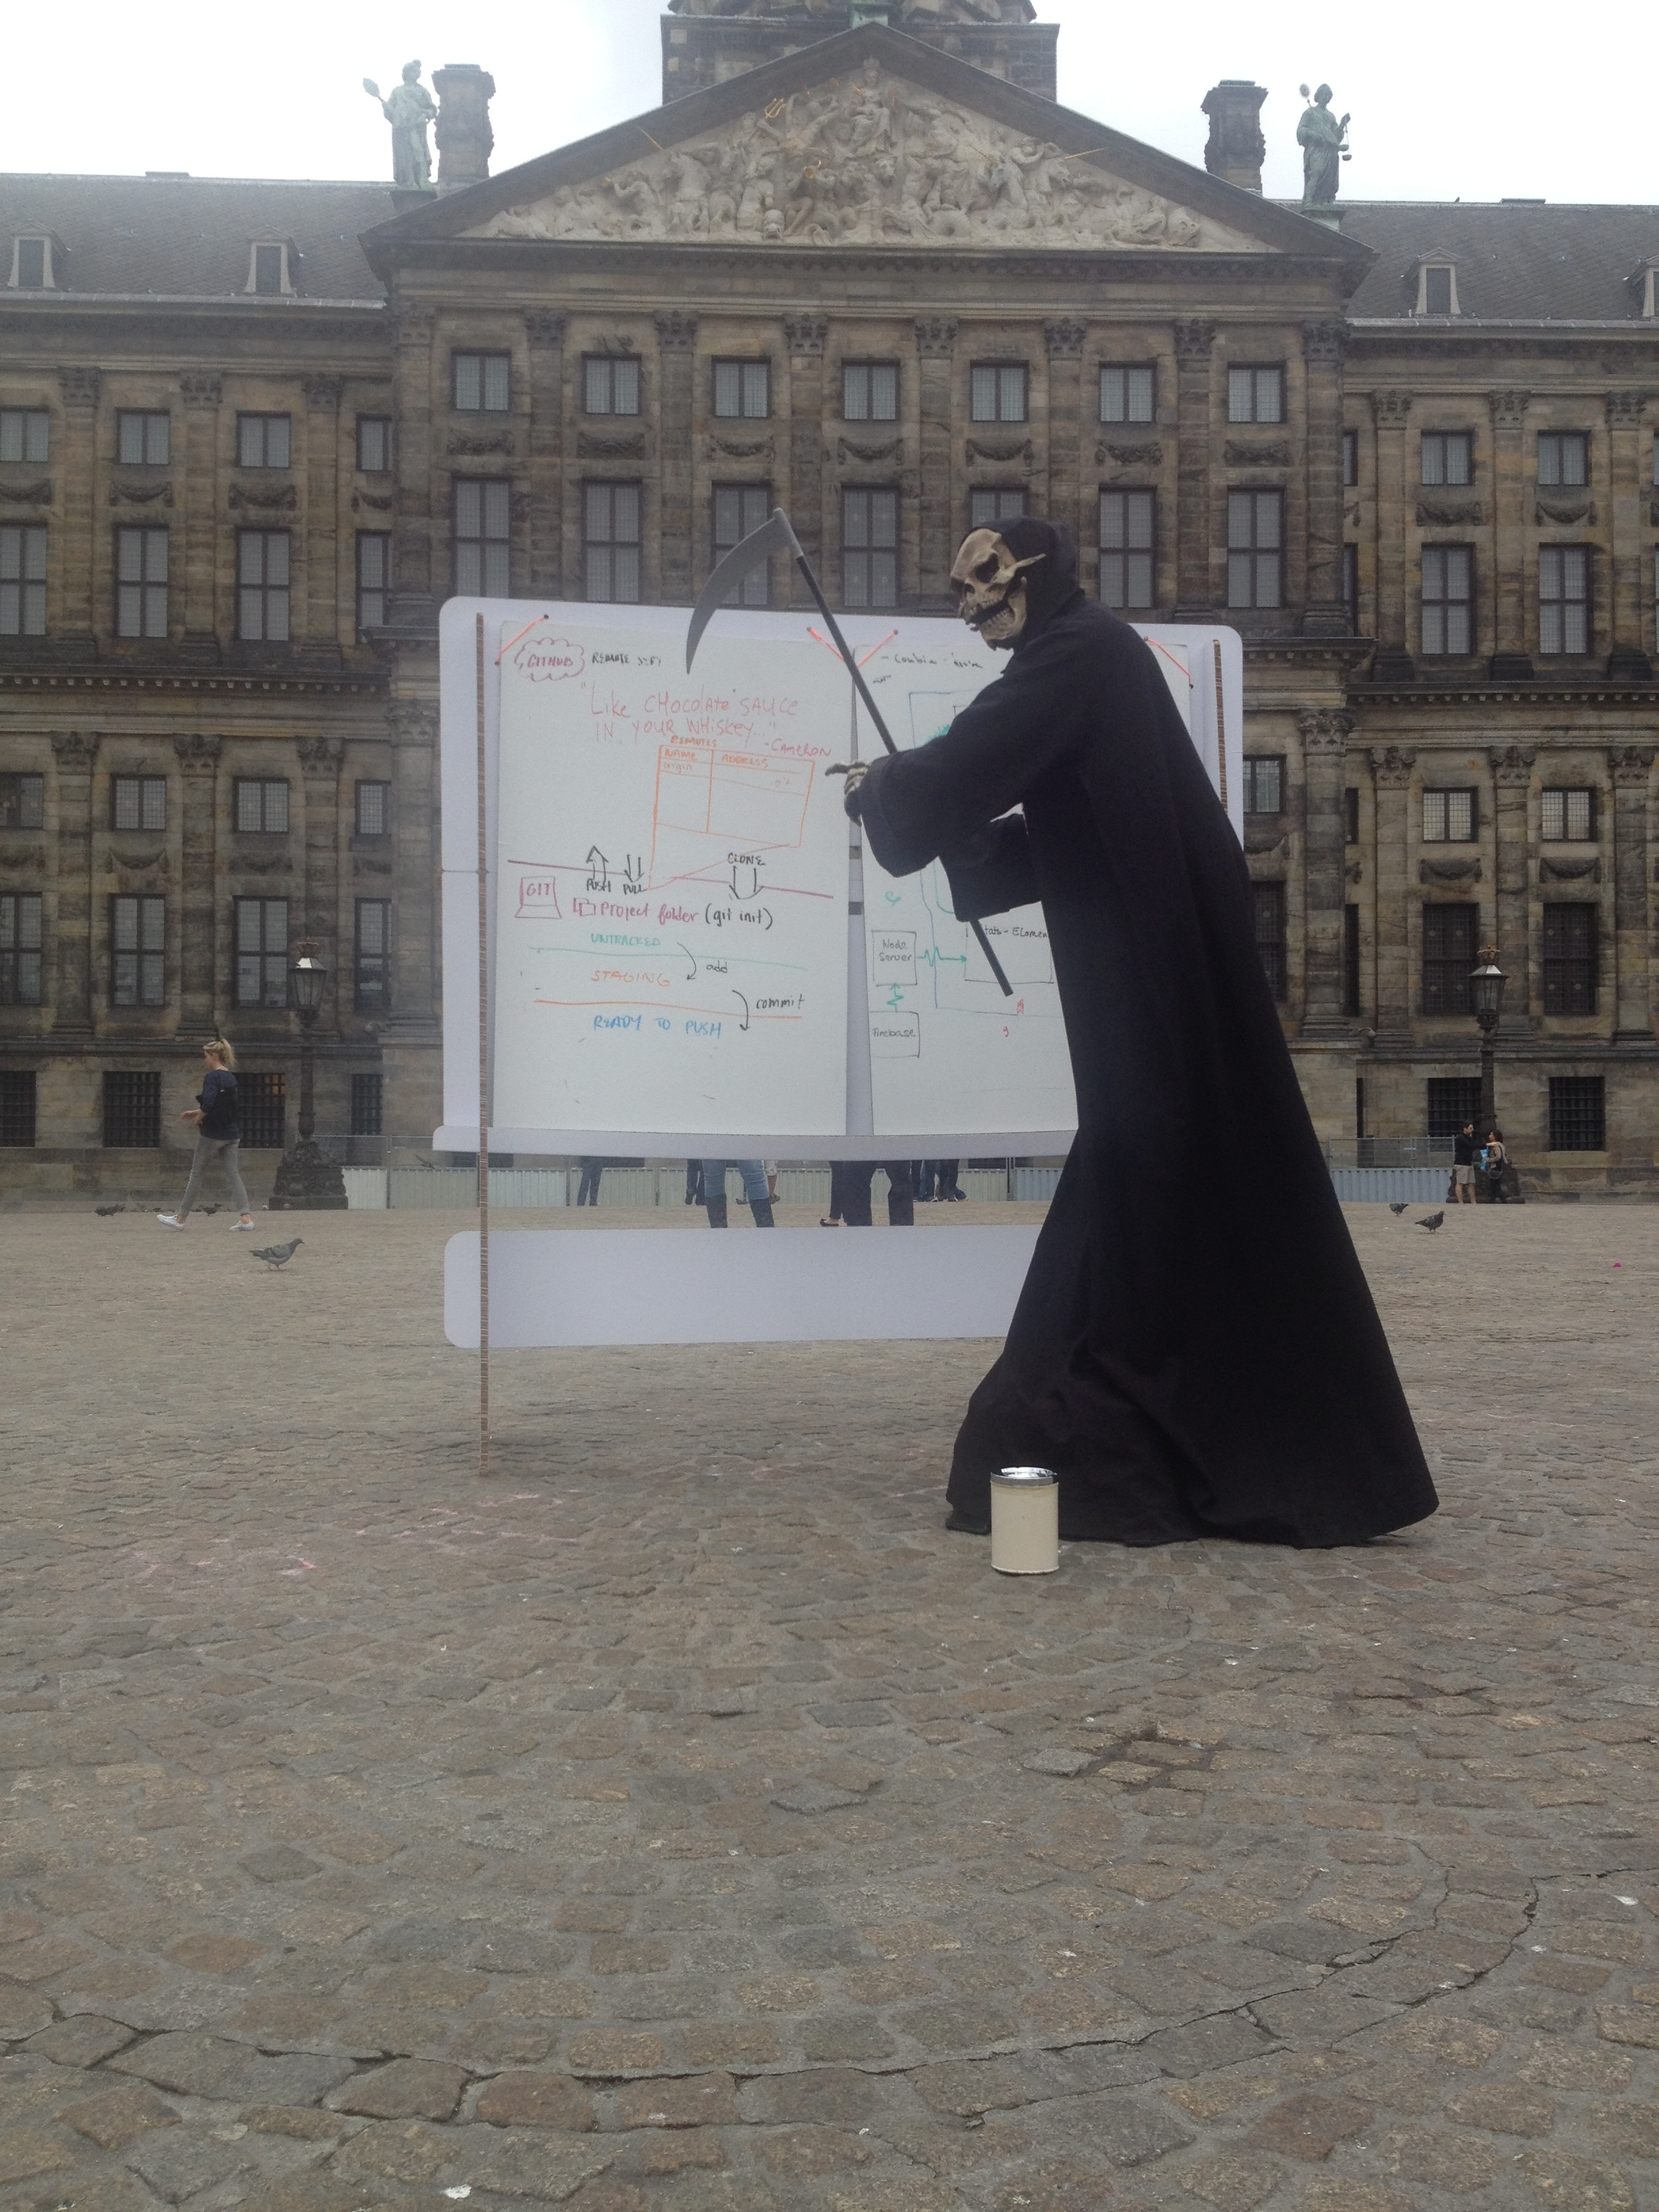 GITHUB REMOTE
"Like CHOCOLATE SAUCE
IN YOUR WHISKEY..."
-CAMERON
REMOTES
NAME ADDRESS
origin
PUSH PULL CLONE
GIT Project folder (git init)
UNTRACKED
add
STAGING
commit
READY TO PUSH
Node
Server
Firebase